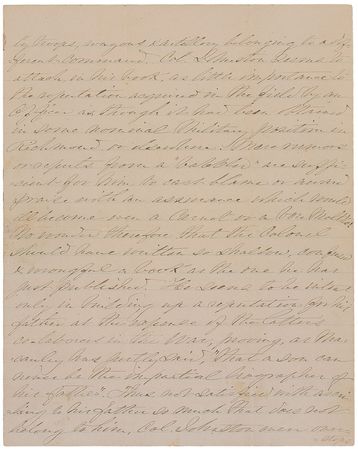 by troops, wagons & artillery belonging to a dif-
ferent command. Col. Johnston seems to
attach in his book, as little importance to
the reputation acquired in the field by an
Officer as though it had been obtained
in some nominal Military position in
Richmond or elsewhere. Mere rumors
or reports from a are suffi-
cient for him to cast blame or award
praise with an assurance which would
become even a or a
No wonder therefore that the Colonel
should have written so shallow,
& wrongful a book as the one he has
just published. He seems to be intent
only in building up a reputation for his
father at the expense of the latter's
co-laborers in the War, proving, as Ma-
caulay has aptly said, "that a son can
never be the impartial biographer of
his father". Thus not satisfied with ascri-
bing to his father so much that does not
belong to him, Col. Johnston even over-
steps